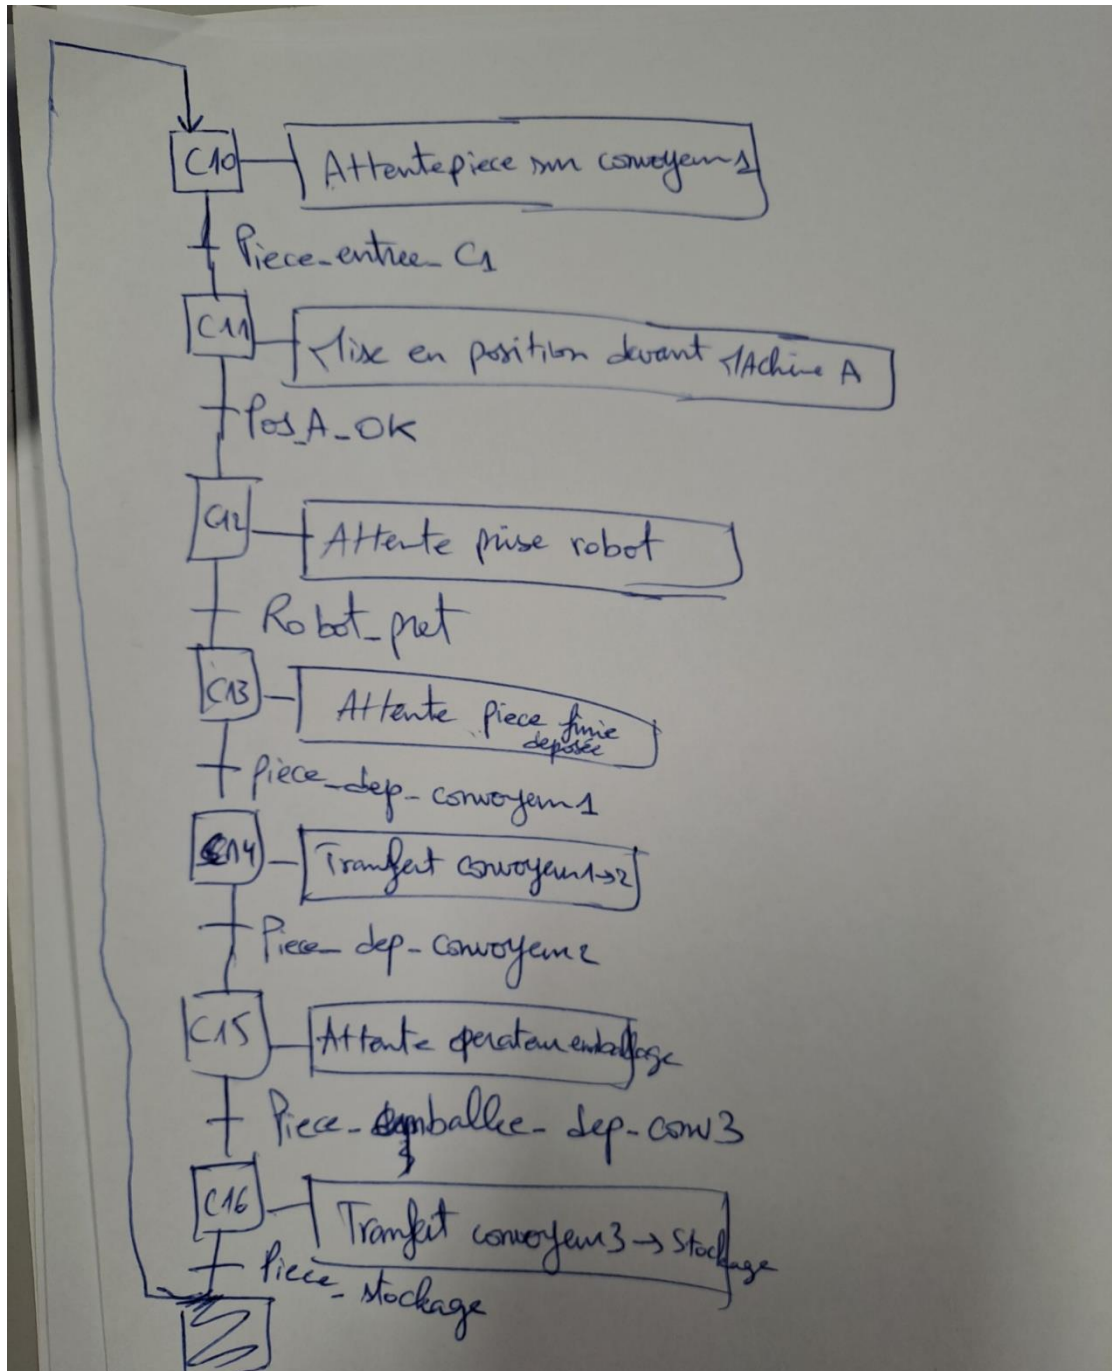 C10
Attente piece sur convoyeur 1
Piece_entree_C1
C11
Mise en position devant MAchine A
Pos_A_OK
C12
Attente prise robot
Robot_pret
C13
Attente piece finie
deposée
Pièce_dep_convoyeur1
C14
Tranfert convoyeur1→2
Piece_dep_convoyeur2
C15
Attente operateur emballage
Piece_emballee_dep_conv3
C16
Tranfert convoyeur3 → Stockage
Piece_stockage